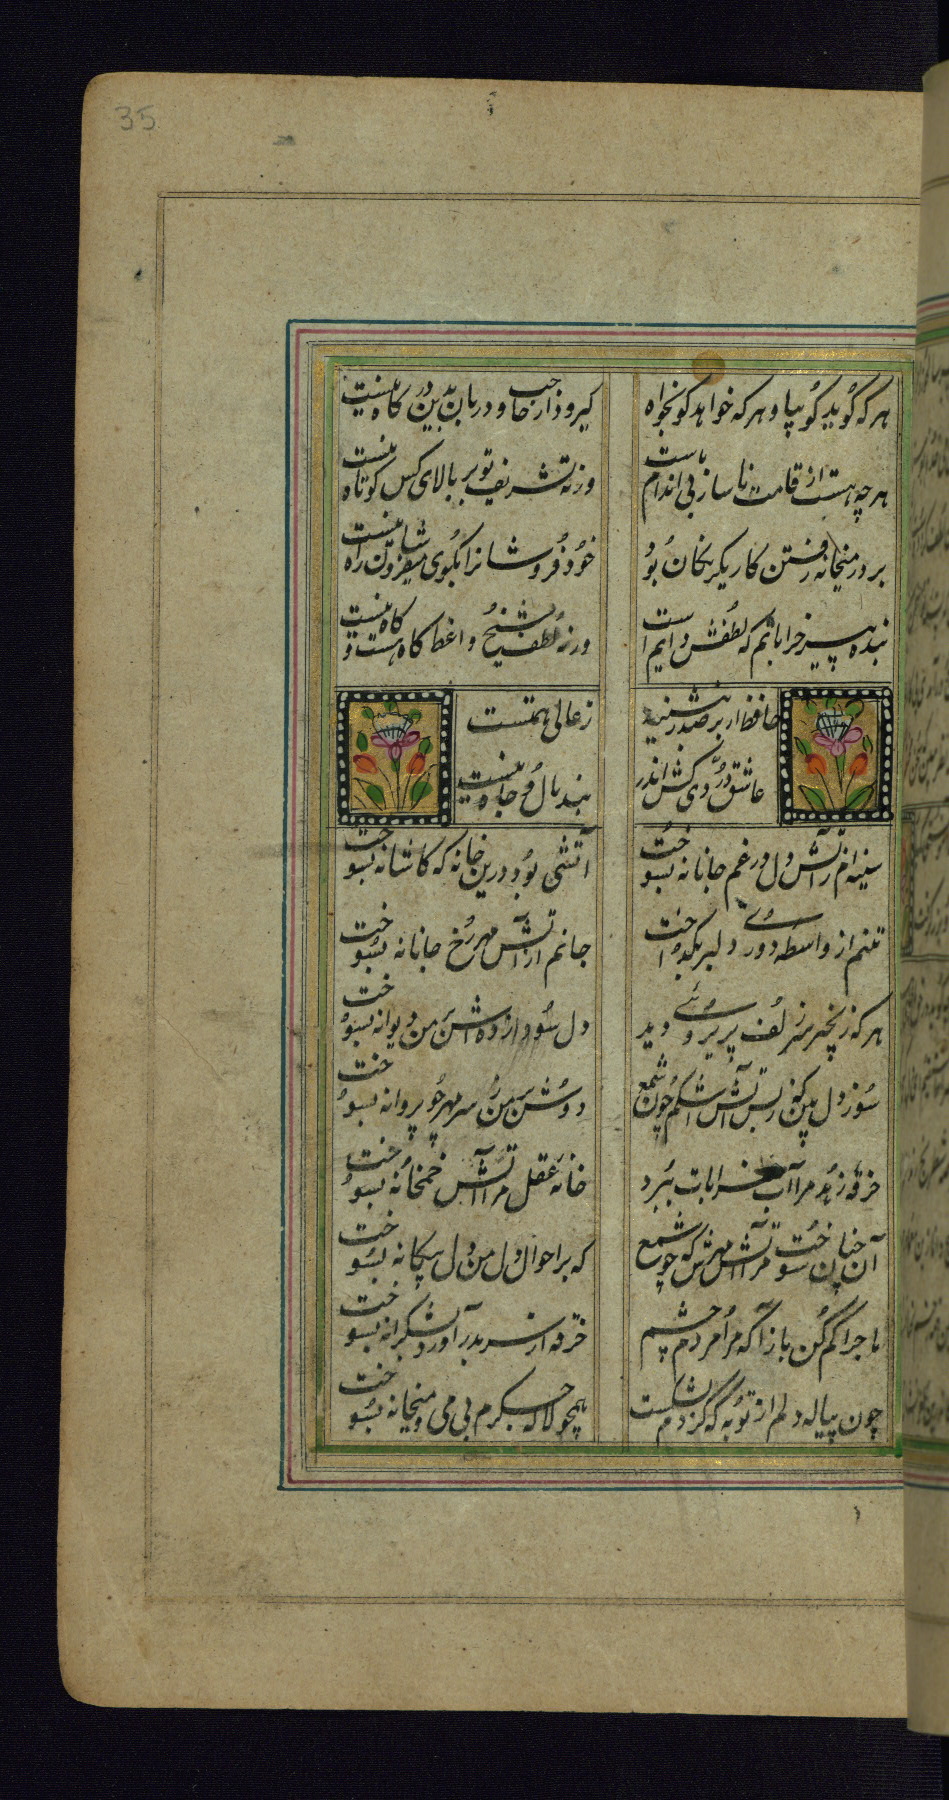 35
هر که گوید گو بیا و هر که خواهد گو بخواه
کیر و دار حاجب و دربان بدین درگاه نیست
هر چه هست از قامت ناساز بی اندام ماست
ورنه تشریف تو بر بالای کس کوتاه نیست
بر در میخانه رفتن کار یکرنگان بود
خود فروشانرا بکوی میفروشان راه نیست
بنده پیر خراباتم که لطفش دایم است
ورنه لطف شیخ و واعظ گاه هست و گاه نیست
حافظ ار بر صدر ننشیند
ز عالی همتست
عاشق دردی کش اندر
بند مال و جاه نیست
سینه ام ز آتش دل در غم جانانه بسوخت
آتشی بود درین خانه که کاشانه بسوخت
تنم از واسطه دوری دلبر بگداخت
جانم از آتش مهر رخ جانانه بسوخت
هر که زنجیر سر زلف پریروئی دید
دل سودازده اش بر من دیوانه بسوخت
سوز دل بین که ز بس آتش اشکم چون شمع
دوش بر من ز سر مهر چو پروانه بسوخت
خرقه زهد مرا آب خرابات ببرد
خانه عقل مرا آتش خمخانه بسوخت
آن چنان سوخت مرا آتش مهرش که چو شمع
که بر احوال دل من دل بیگانه بسوخت
ماجرا کم کن باز آ که مرا مردم چشم
خرقه از سر بدر آورد و بشکرانه بسوخت
چون پیاله دلم از توبه که کردم بشکست
همچو لاله جگرم بی می و میخانه بسوخت